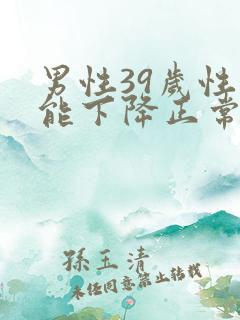 男性39歲性
能下降正常
孫玉清
未经同意禁止转载